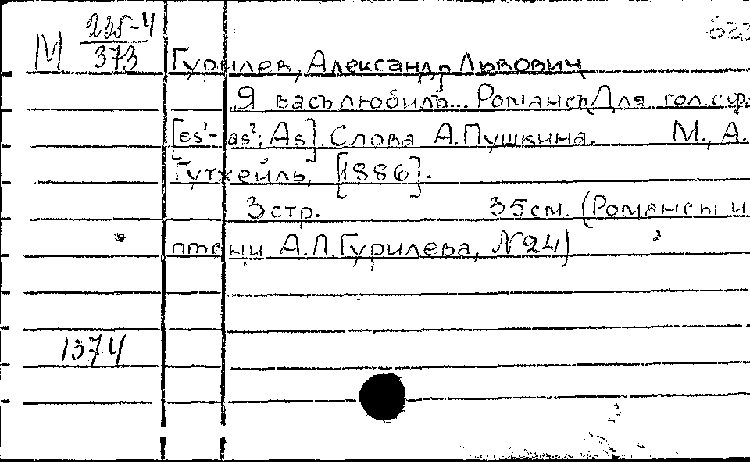 М 225-4
373
Гурилев, Александр Львович
Я васъ любилъ... Романсъ. Для гол. с ф
[es¹-as²; As]. Слова А. Пушкина. М., А.
Гутхейль, [1886].
3 стр. 35 см. (Романсы и
песни А. Л. Гурилева, № 24)
1374